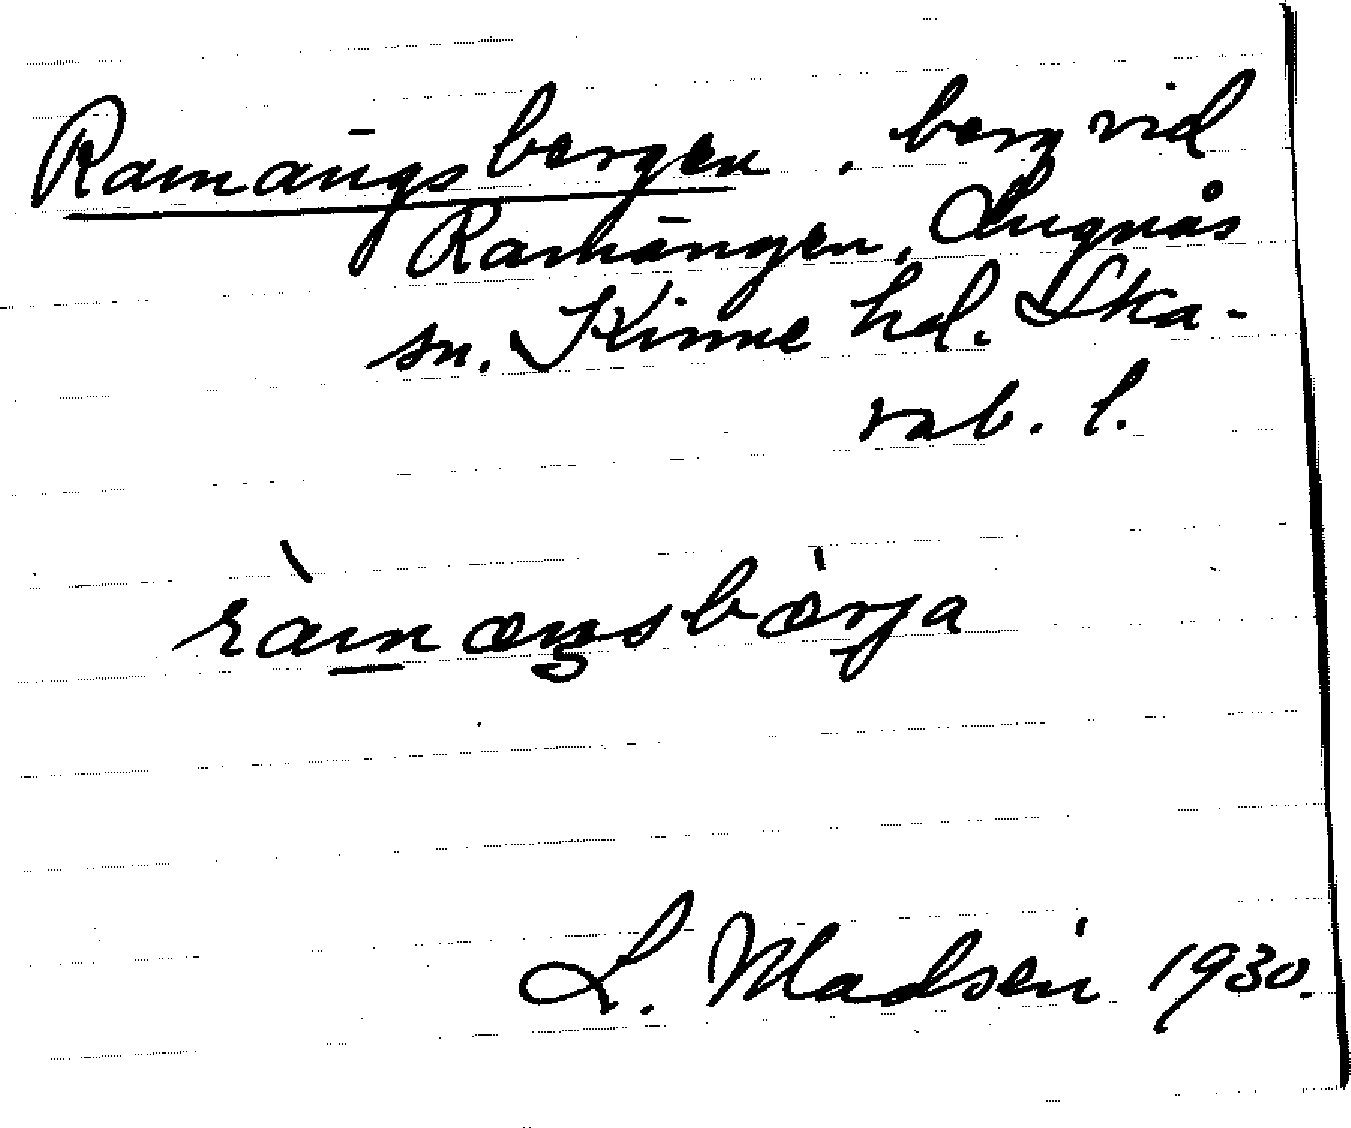 Ramängsbergen, berg vid
Ramängen, Lugnås
sn. Kinne hd. Ska-
rab. l.
ràmæŋsbærja
L. Madsén 1930.